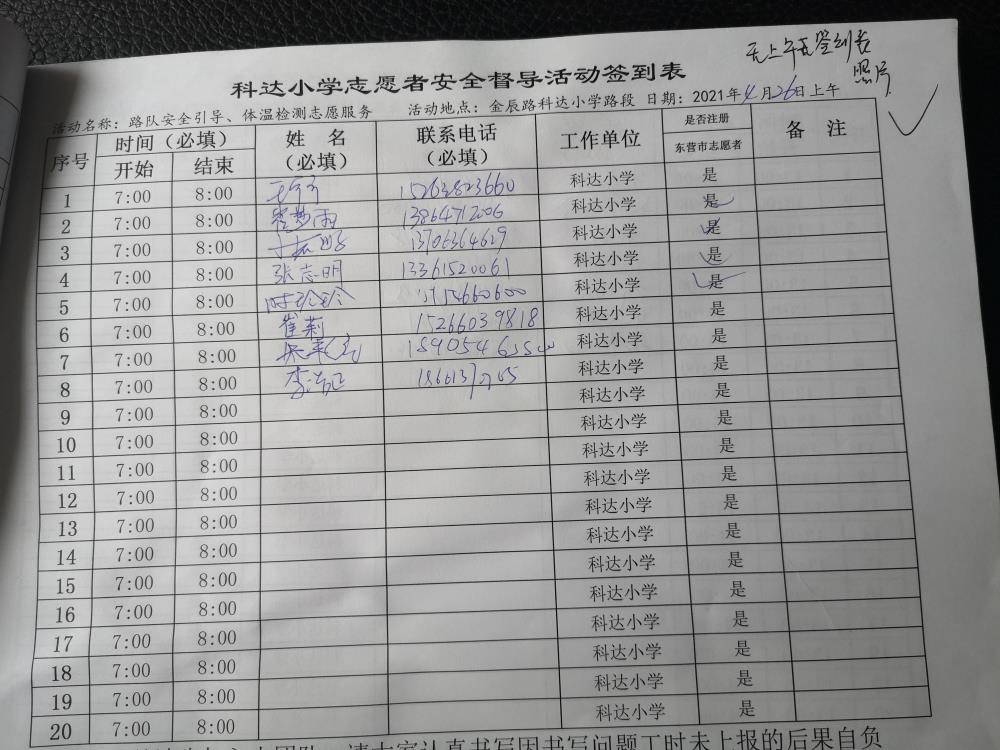 无上午无签到表
照片
科达小学志愿者安全督导活动签到表
活动名称：路队安全引导、体温检测志愿服务 活动地点：金辰路科达小学路段 日期：2021年4月26日上午
序号 时间（必填） 姓 名（必填） 联系电话（必填） 工作单位 是否注册 备 注
开始 结束 东营市志愿者
1 7:00 8:00 15263823660 科达小学 是
2 7:00 8:00 霍梦雨 13864712006 科达小学 是
3 7:00 8:00 13706364619 科达小学 是
4 7:00 8:00 张志明 13361520061 科达小学 是
5 7:00 8:00 时珍珍 科达小学 是
6 7:00 8:00 崔莉 15266039818 科达小学 是
7 7:00 8:00 科达小学 是
8 7:00 8:00 科达小学 是
9 7:00 8:00 科达小学 是
10 7:00 8:00 科达小学 是
11 7:00 8:00 科达小学 是
12 7:00 8:00 科达小学 是
13 7:00 8:00 科达小学 是
14 7:00 8:00 科达小学 是
15 7:00 8:00 科达小学 是
16 7:00 8:00 科达小学 是
17 7:00 8:00 科达小学 是
18 7:00 8:00 科达小学 是
19 7:00 8:00 科达小学 是
20 7:00 8:00 科达小学 是
请大家认真书写因书写问题工时未上报的后果自负